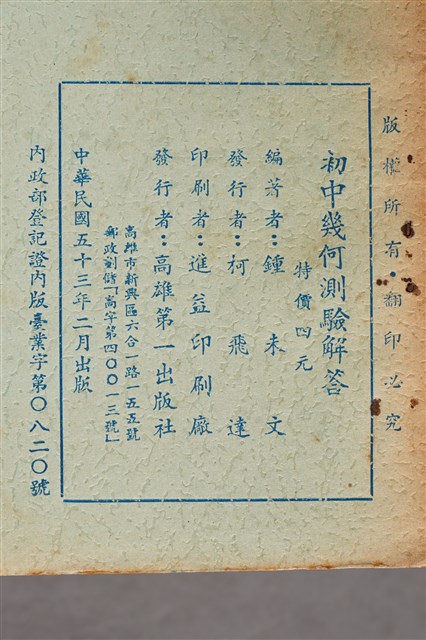 版權所有·翻印必究
初中幾何測驗解答
特價四元
編著者：鍾耒文
發行者：柯飛達
印刷者：進益印刷廠
發行者：高雄第一出版社
高雄市新興區六合一路一五五號
郵政劃儲「高字第四〇〇一三號」
中華民國五十三年二月出版
內政部登記證內版臺業字第〇八二〇號